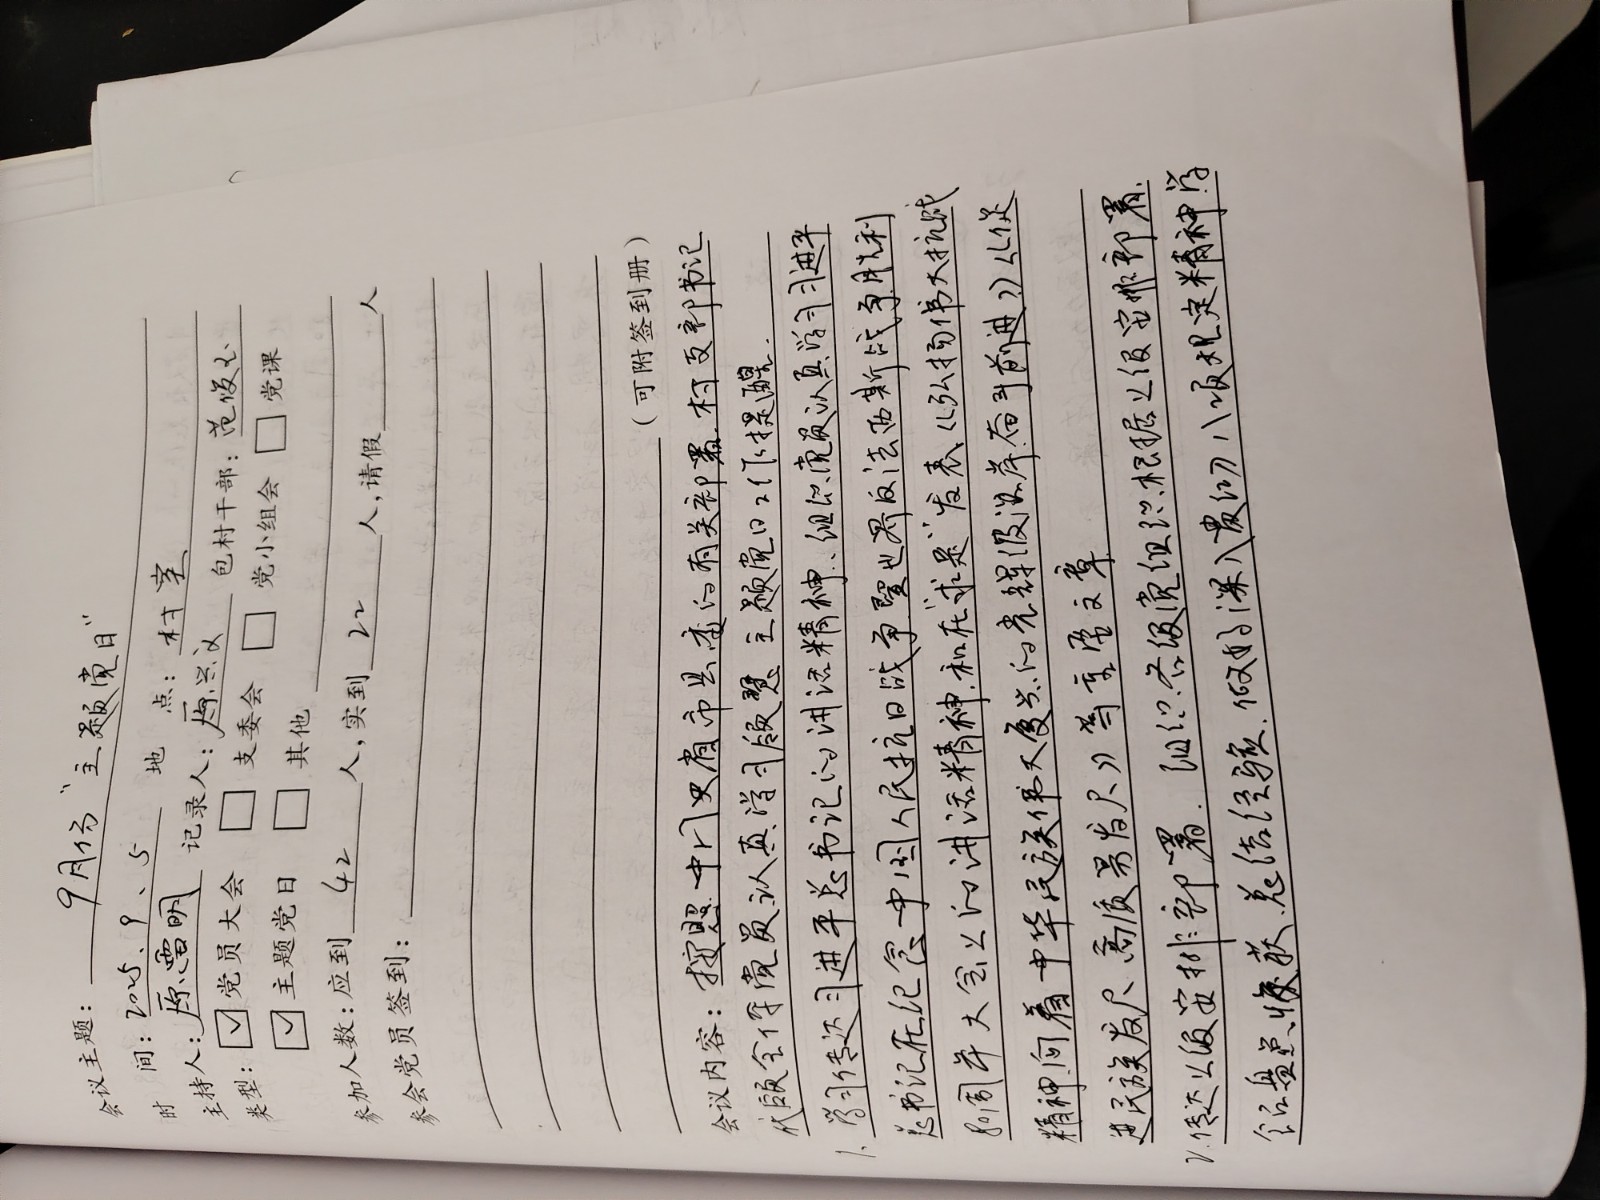 会议主题：9月份"主题党日"
时 间：2025.9.5 地 点：村室
主持人：原雷明 记录人：原兴议 包村干部：范俊
类型：☑党员大会 □支委会 □党小组会 □党课
☑主题党日 □其他
参加人数：应到 42 人，实到 22 人，请假 人
参会党员签到：
（可附签到册）
会议内容：按照中门史省市县委的有关部署，村支部书记
代领全体党员认真学习领慧主题党日工作提醒.
1.学习传达习进平总书记的讲话精神.组织党员认真学习习进平
总书记在纪念中国人民抗日战争暨世界反法西斯战争胜利
周年大会上的讲话精神和在"求是"发表《弘扬伟大抗战
精神.向着中华民族伟大复兴的光辉彼岸奋斗前进》《促
进民族发展、高质易发展》等重要文章
2.传达上级安排部署. 组织各级党组织根据上级安排部署.
全面盘点收获.总结经验.做好深入贯彻八项规定精神学